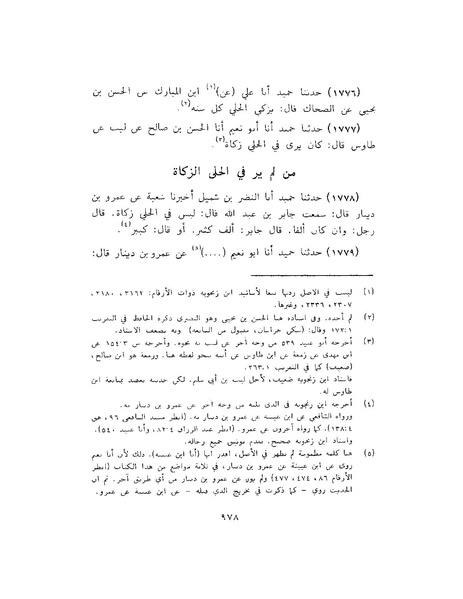 (١٧٧٦) حدثنا حميد أنا علي (عن)(١) ابن المبارك عن الحسن بن
يحيى عن الضحاك قال: يزكى الحلي كل سنة(٢).
(١٧٧٧) حدثنا حميد أنا أبو نعيم أنا الحسن بن صالح عن ليث عن
طاوس قال: كان يرى في الحلي زكاة(٣).
من لم ير في الحلى الزكاة
(١٧٧٨) حدثنا حميد أنا النضر بن شميل أخبرنا شعبة عن عمرو بن
دينار قال: سمعت جابر بن عبد الله قال: ليس في الحلي زكاة. قال
رجل: وان كان ألفا. قال جابر: ألف كثير. أو قال: كبير(٤).
(١٧٧٩) حدثنا حميد أنا ابو نعيم (....)(٥) عن عمرو بن دينار قال:
(١) ليست في الاصل زدتها تبعا لأسانيد ابن زنجويه ذوات الأرقام: ٣١٦٢، ٢١٨٠،
٢٣٠٧، ٢٣٣٦، وغيرها.
(٢) لم أجده. وفي اسناده هنا الحسن بن يحيى وهو البصري ذكره الحافظ في التقريب
١: ١٧٢ وقال: (سكن خراسان، مقبول من السابعة). وبه يضعف الاسناد.
(٣) أخرجه أبو عبيد ٥٣٩ من وجه آخر عن ليث به نحوه. وأخرجه ص ١٥٤٣ عن
ابن مهدي عن زمعة عن ابن طاوس عن أبيه نحو لفظه هنا. وزمعة هو ابن صالح،
(ضعيف) كما في التقريب ١: ٢٦٣.
فاسناد ابن زنجويه ضعيف، لأجل ليث بن أبي سليم. لكن حديثه يعضد بمتابعة ابن
طاوس له.
(٤) أخرجه ابن زنجويه في الذي يليه من وجه آخر عن عمرو بن دينار به.
ورواه الشافعي عن ابن عيينة عن عمرو بن دينار به. (انظر مسند الشافعي ٩٦، هق
٤: ١٣٨). كما رواه آخرون عن عمرو. (انظر عبد الرزاق ٤: ٨٢، وأبا عبيد ٥٤٠).
واسناد ابن زنجويه صحيح. تقدم توثيق جميع رجاله.
(٥) هنا كلمة مطموسة لم تظهر في الأصل، أقدر أنها (أنا ابن عيينة). ذلك لأن أبا نعيم
روى عن ابن عيينة عن عمرو بن دينار، في ثلاثة مواضع من هذا الكتاب (انظر
الأرقام ٨٦، ٤٧٤، ٤٧٧) ولم يرو عن عمرو بن دينار من أي طريق آخر. ثم ان
الحديث روي - كما ذكرت في تخريج الذي قبله - عن ابن عيينة عن عمرو.
٩٧٨